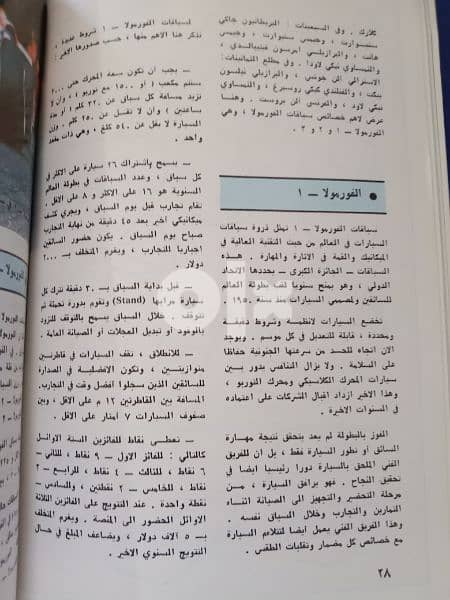 كلارك. وفي السبعينات: البريطانيون جاكي
ستيوارت، وجيمس ستيوارت، وجيمس
هانت، والبرازيلي امرسون فيتيبالدي،
والنمساوي نيكي لاودا. وفي مطلع الثمانينات:
الاسترالي آلن جونس، والبرازيلي نيلسون
بيكت، والفنلندي كيكي روسبرغ، والنمساوي
نيكي لاود، والفرنسي آلن بروست. وهنا
عرض لاهم خصائص سباقات الفورمولا، وهي
الفورمولا — ١ و ٢ و ٣.
● الفورمولا — ١
سباقات الفورمولا — ١ تمثل ذروة سباقات
السيارات في العالم من حيث التقنية العالية في
الميكانيك والقمة في الاثارة والمهارة. هذة
السباقات — الجائزة الكبرى — يحددها الاتحاد
الدولي، وهو يمنح سنويا لقب بطولة العالم
للسائقين ولمصممي السيارات منذ سنة ١٩٥٠.
تخضع السيارات لانظمة وشروط دقيقة
ومحددة، قابلة للتعديل في كل موسم. ويوجد
الان اتجاه للحد من سرعتها الجنونية حفاظا
على السلامة. ولا يزال التنافس يدور بين
سيارات المحرك الكلاسيكي ومحرك التوربو،
وهذا الاخير ازداد اقبال الشركات على اعتماده
في السنوات الاخيرة.
الفوز بالبطولة لم يعد يتحقق نتيجة مهارة
السائق او تطور السيارة فقط، بل ان للفريق
الفني الملحق بالسيارة دورا رئيسيا ايضا في
تحقيق النجاح. فهو يرافق السيارة، من
مرحلة التحضير والتجهيز الى الصيانة اثناء
التمارين والتجارب وخلال السباق نفسه.
وهذا الفريق الفني يعمل ايضا لتتلاءم السيارة
مع خصائص كل مضمار وتقلبات الطقس.
لسباقات الفورمولا — ١ شروط عديدة،
نذكر هنا الاهم منها، حسب صدورها الاخير:
— يجب ان تكون سعة المحرك حتى ٣٠٠٠
سنتم مكعب (او ١٥٠٠ مع توربو)، وان لا
تزيد مسافة كل سباق عن ٣٢٠ كلم (او مدة
ساعتين) وان لا تقل عن ٢٥٠ كلم. وان
السيارة لا يقل عن ٥٤٠ كلغ، وهي ذات مقعد
واحد.
— يسمح باشتراك ٢٦ سيارة على الاكثر في
كل سباق، وعدد السباقات في بطولة العالم
السنوية هو ١٦ على الاكثر و ٨ على الاقل.
تقام تجارب قبل يوم السباق، ويجرى كشف
ميكانيكي اخير بعد ٤٥ دقيقة من نهاية التجارب
صباح يوم السباق. ويكون حضور السائقين
اجباريا للتجارب، ويغرم المتخلف بـ ٣٠٠٠
دولار.
— قبل بداية السباق بـ ٣٠ دقيقة تترك كل
سيارة مرابها (Stand) وتقوم بدورة تحمئة ثم
تتوقف. خلال السباق يسمح بالتوقف للتزود
بالوقود او تبديل العجلات او الصيانة العامة.
— للانطلاق، تقف السيارات في قاطرتين
متوازيتين، وتكون الافضلية في الصدارة
للسائقين الذين سجلوا افضل وقت في التجارب.
المسافة بين القاطرتين ١٢ م على الاقل، وبين
صفوف السيارات ٧ أمتار على الاقل.
— تعطى نقاط للفائزين الستة الاوائل
كالتالي: للفائز الاول — ٩ نقاط، للثاني —
٦ نقاط، للثالث — ٤ نقاط، للرابع — ٣
نقاط، للخامس — ٢ نقطتين، وللسادس —
نقطة واحدة. عند التتويج على الفائزين الثلاثة
الاوائل الحضور الى المنصة. ويغرم المتخلف
بـ ٥ الاف دولار، ويضاعف المبلغ في حال
التتويج السنوي الاخير.
٢٨